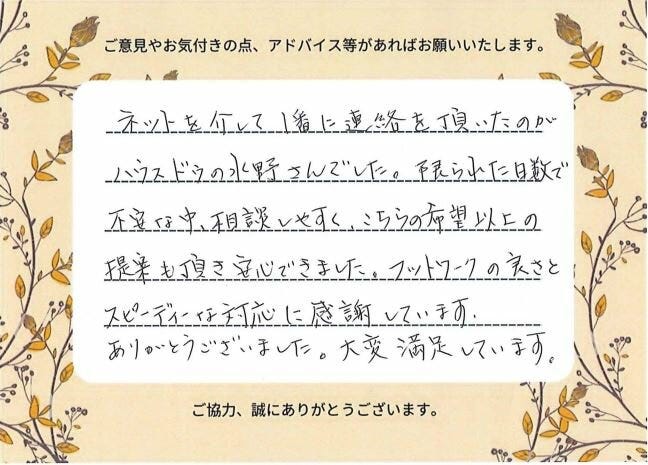 ご意見やお気付きの点、アドバイス等があればお願いいたします。
ネットを介して1番に連絡を頂いたのが
ハウスドゥの水野さんでした。限られた日数で
不安な中、相談しやすく、こちらの希望以上の
提案も頂き安心できました。フットワークの良さと
スピーディーな対応に感謝しています。
ありがとうございました。大変満足しています。
ご協力、誠にありがとうございます。